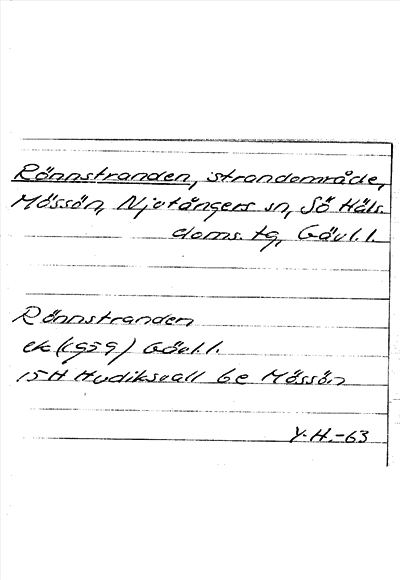 Rönnstranden, strandområde,
Mössön, Njutångers sn, Sö Häls.
doms. tg, Gävl. l.
Rönnstranden
ek (1959) Gävl. l.
15 H Hudiksvall 6e Mössön
Y. H. -63